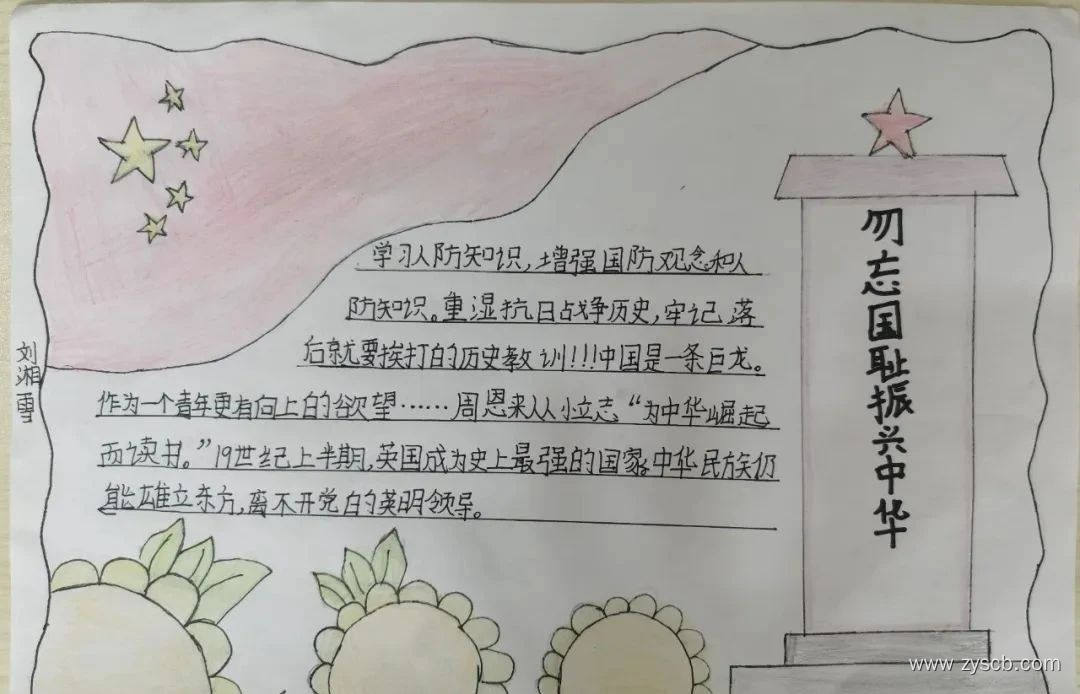 学习人防知识，增强国防观念和人
防知识。重湿抗日战争历史，牢记落
后就要挨打的历史教训!!!中国是一条巨龙。
作为一个青年更有向上的欲望……周恩来从小立志“为中华崛起
而读书。”19世纪上半期，英国成为史上最强的国家，中华民族仍
能雄立东方，离不开党的英明领导。
勿忘国耻振兴中华
刘湘雪
www.zyscb.com